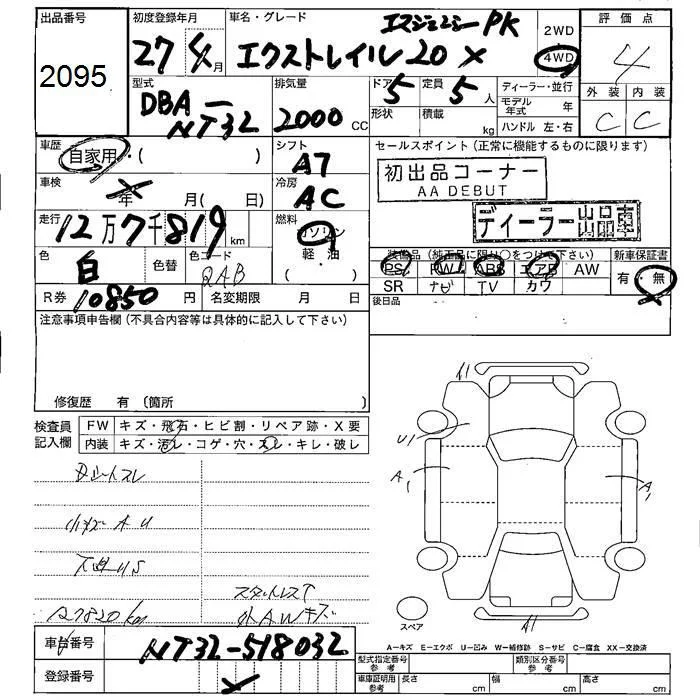 出品番号
2095
初度登録年月
27年4月
車名・グレード
エクストレイル 20 X
エマジェンシー PK
2WD
4WD
評価点
4
外装 内装
C C
型式
DBA-NT32
排気量
2000 CC
ドア 5
形状
定員 5人
積載 kg
ディーラー・並行
モデル年式 年
ハンドル 左・右
車歴
自家用・( )
シフト
A7
セールスポイント (正常に機能するものに限ります)
初出品コーナー
AA DEBUT
ディーラー出品車
車検
年 月( 日)
冷房
AC
走行
12万7千819 km
燃料
ガソリン
軽・油
( )
色
白
色替
色コード
QAB
装備品 (純正品に限り○をつけて下さい)
PS PW ABS エアB AW
SR ナビ TV カワ
新車保証書
有・無
R券
10850 円
名変期限 月 日
後日品
注意事項申告欄 (不具合内容等は具体的に記入して下さい)
修復歴 有 (箇所 )
検査員記入欄
FW キズ・飛石・ヒビ割・リペア跡・X要
内装 キズ・汚レ・コゲ・穴・スレ・キレ・破レ
シートスレ
小キズ A U
下廻りS
スタットレス
外AWキズ
A1
U1
A1
A1
A1
スペア
A-キズ E-エクボ U-凹み W-補修跡 S-サビ C-腐食 XX-交換済
車台番号
NT32-518032
登録番号
型式指定番号 参考
類別区分番号 参考
車庫証明用 参考
長さ cm
幅 cm
高さ cm